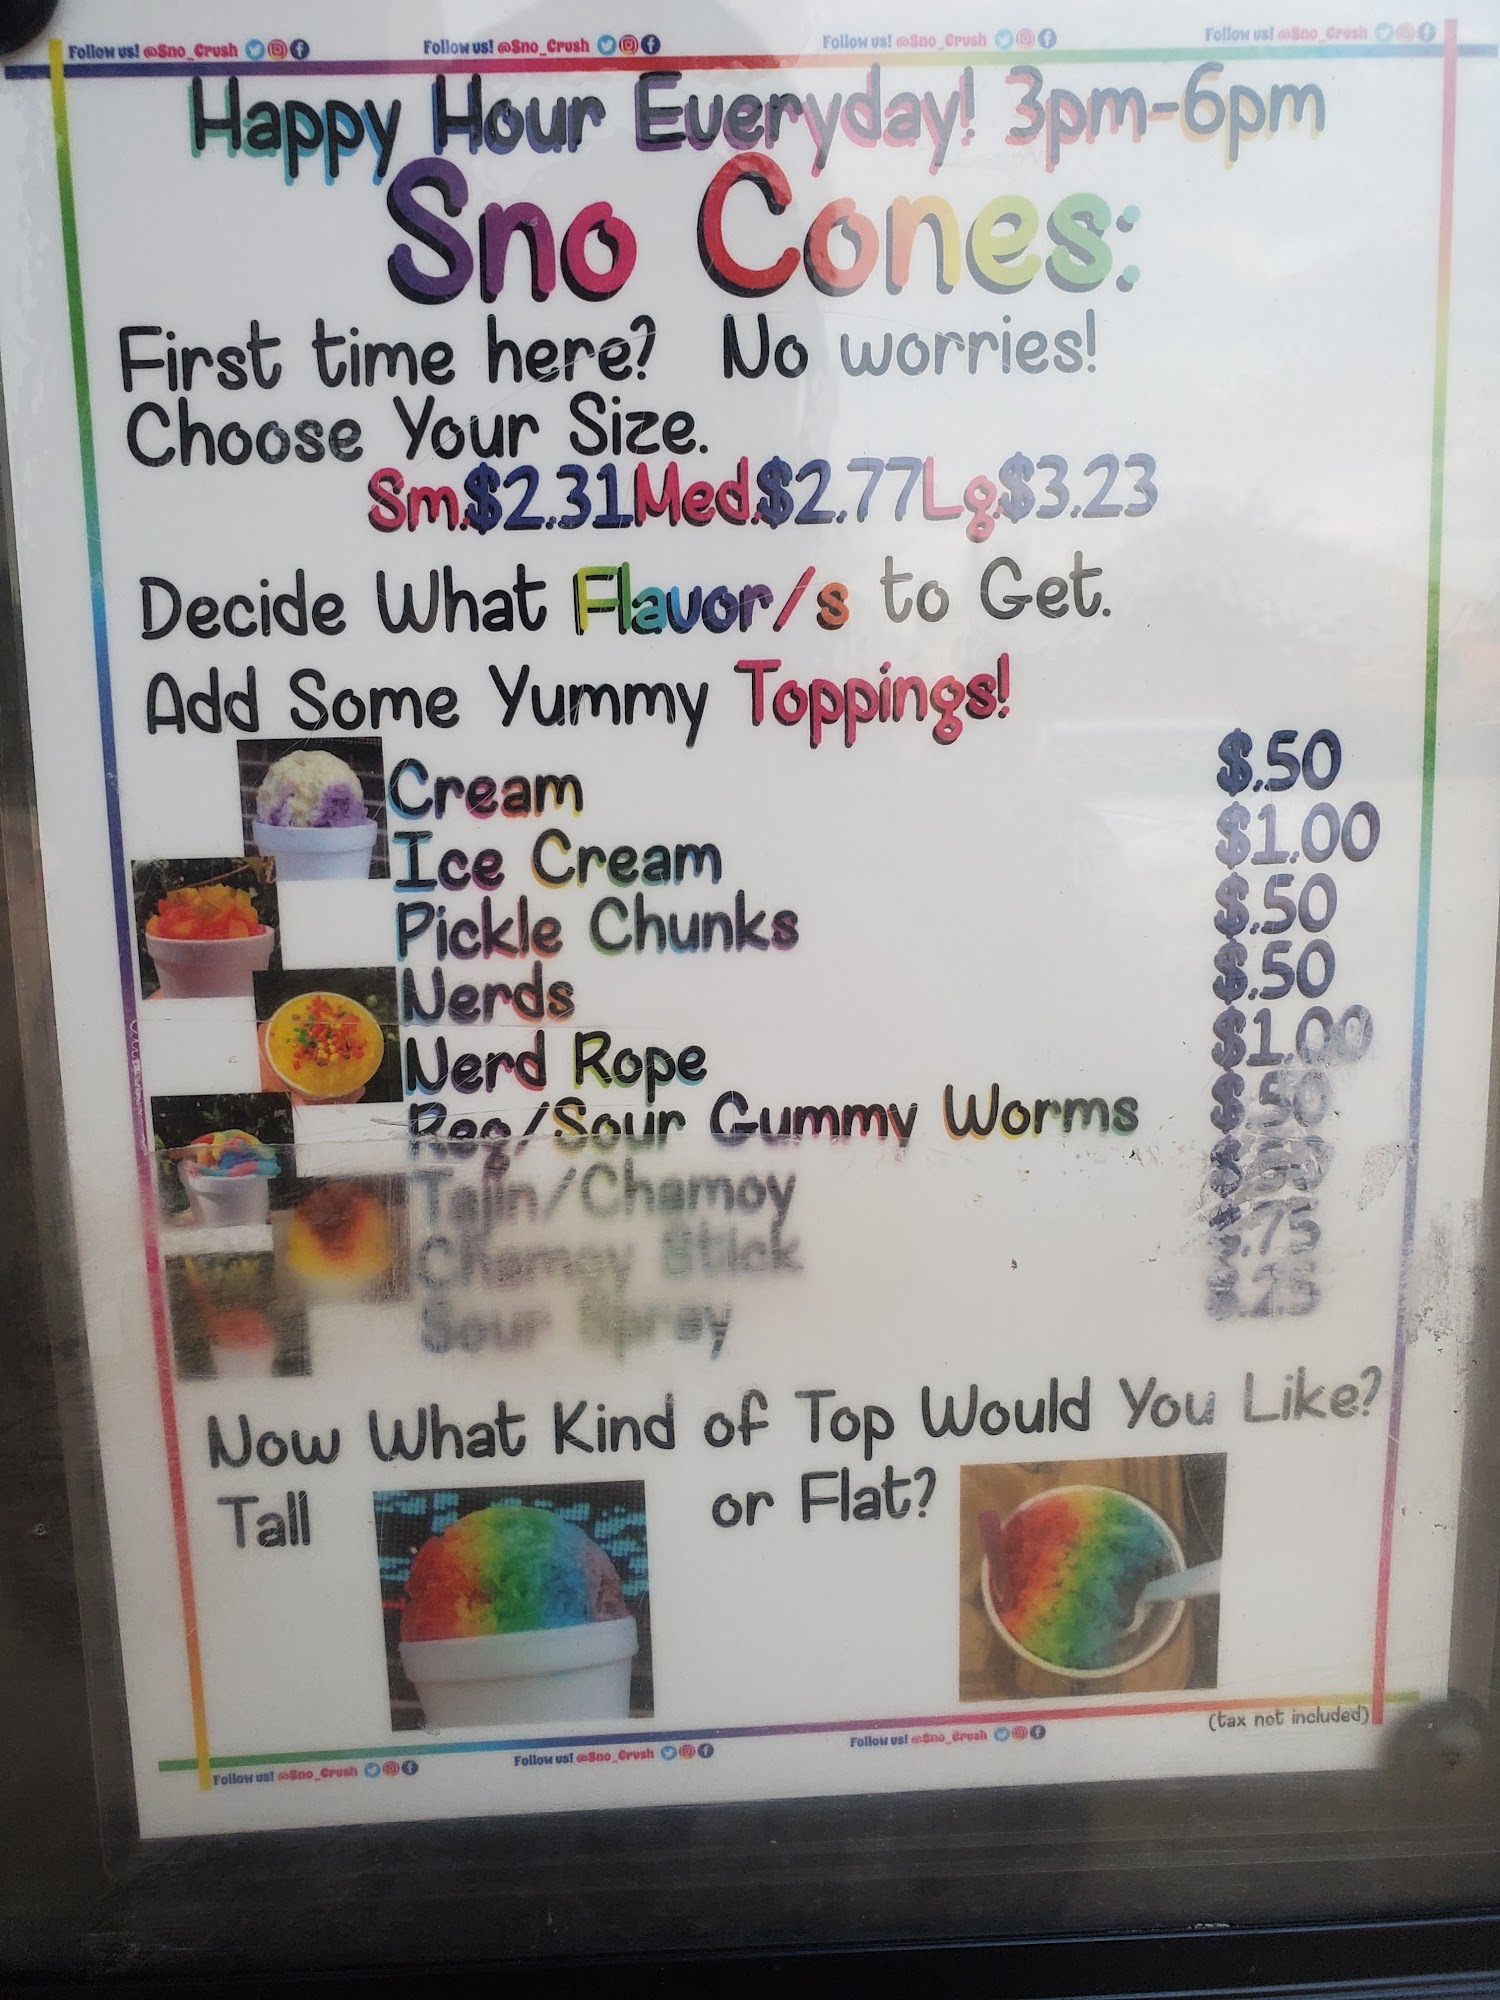 Follow us! @Sno_Crush Follow us! @Sno_Crush Follow us! @Sno_Crush Follow us! @Sno_Crush
Happy Hour Everyday! 3pm-6pm
Sno Cones:
First time here? No worries!
Choose Your Size.
Sm.$2.31Med.$2.77Lg.$3.23
Decide What Flavor/s to Get.
Add Some Yummy Toppings!
Cream $.50
Ice Cream $1.00
Pickle Chunks $.50
Nerds $.50
Nerd Rope $1.00
Reg/Sour Gummy Worms $.50
Tajin/Chamoy
Chamoy Stick $.75
Sour Spray $.25
Now What Kind of Top Would You Like?
Tall or Flat?
(tax not included)
Follow us! @Sno_Crush Follow us! @Sno_Crush Follow us! @Sno_Crush